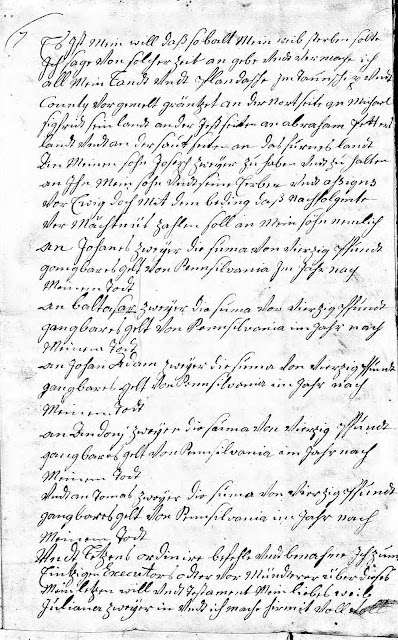 Es Ist Mein will daß so balt Mein weib sterben solte
Ich sage von solcher Zeit an gebe Undt vermache ich
all Mein Landt Undt Plandasche In Undt
County vorgemelt gräntzet an der Nortseite an Michael
sein land ander Jestseiten an abraham
landt Undt an der Saut seiten an das landt
Den Meinen sohn Joseph Zweyer zu haben Undt zu halten
an Ihn Mein sohn Undt seine Herben Undt aßeigns
vor Ewig doch Mit dem beding daß nachfolgente
ver Mächtnüs zahlen soll an Mein söhn nemlich
an Johanes Zweyer die suma von vierzig Pfundt
gangbares gelt von Pennsilvania Im Jahr nach
Meinem Todt
an baltasar Zweyer die suma von vierzig Pfundt
gangbares gelt von Pennsilvania im Jahr nach
Meinem Todt
an Johan Adam Zweyer die suma von vierzig Pfundt
gangbares gelt von Pennsilvania im Jahr nach
Meinem Todt
an Andony Zweyer die suma von vierzig Pfundt
gangbares gelt von Pennsilvania im Jahr nach
Meinem Todt
Undt an Tomas Zweyer die suma von vierzig Pfundt
gangbares gelt von Pennsilvania im Jahr nach
Meinem Todt
Undt letzens ordinire befehle Undt benahme Ich zum
Eintzigen Executors oder vor Münderer über dieses
Mein letzten will Undt Testament Mein liebes weib
Juliana Zweyer in Undt ich mache hirmit voll